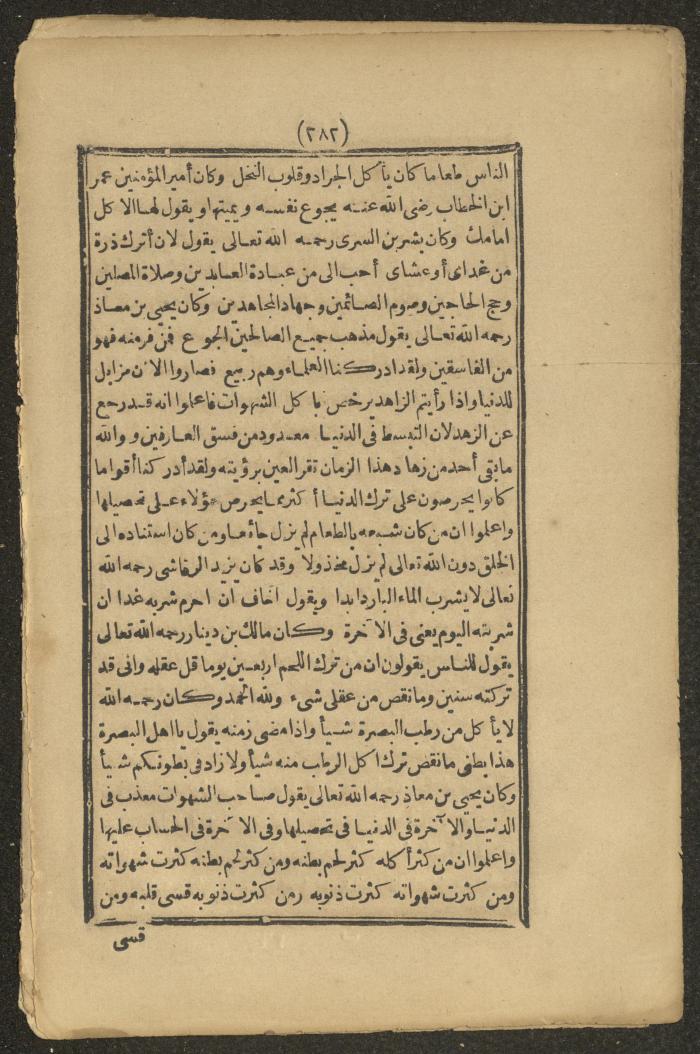 (٢٨٢)
الناس طعاما كان يأكل الجراد وقلوب النخل وكان أمير المؤمنين عمر
ابن الخطاب رضى الله عنه يجوع نفسه ويميتها ويقول لها الاكل
امامك وكان بشر بن السرى رحمه الله تعالى يقول لان أترك ذرة
من غداى أو عشاى أحب الى من عبادة العابدين وصلاة المصلين
وحج الحاجين وصوم الصائمين وجهاد المجاهدين وكان يحيى بن معاذ
رحمه الله تعالى يقول مذهب جميع الصالحين الجوع فمن فر منه فهو
من الفاسقين ولقد ادركنا العلماء وهم ربيع فصاروا الآن مزابل
للدنيا واذا رأيتم الزاهد يرخص باكل الشهوات فاعلموا انه قد رجع
عن الزهد لان التبسط فى الدنيا معدود من فسق العارفين ووالله
ما بقى أحد من زهاد هذا الزمان تقر العين برؤيته ولقد أدركنا أقواما
كانوا يحرصون على ترك الدنيا أكثر مما يحرص هؤلاء على تحصيلها
واعلموا ان من كان شبعه بالطعام لم يزل جائعا ومن كان استناده الى
الخلق دون الله تعالى لم يزل مخذولا وقد كان يزيد الرقاشى رحمه الله
تعالى لا يشرب الماء البارد ابدا ويقول اخاف ان احرم شربه غدا ان
شربته اليوم يعنى فى الآخرة وكان مالك بن دينار رحمه الله تعالى
يقول للناس يقولون ان من ترك اللحم اربعين يوما قل عقله وانى قد
تركته سنين وما نقص من عقلى شىء ولله الحمد وكان رحمه الله
لا يأكل من رطب البصرة شيأ واذا مضى زمنه يقول يا اهل البصرة
هذا بطنى ما نقص ترك اكل الرطب منه شيأ ولا زاد فى بطونكم شيأ
وكان يحيى بن معاذ رحمه الله تعالى يقول صاحب الشهوات معذب فى
الدنيا والآخرة فى الدنيا فى تحصيلها وفى الآخرة فى الحساب عليها
واعلموا ان من كثر أكله كثر لحم بطنه ومن كثر لحم بطنه كثرت شهواته
ومن كثرت شهواته كثرت ذنوبه ومن كثرت ذنوبه قسى قلبه ومن
قسى